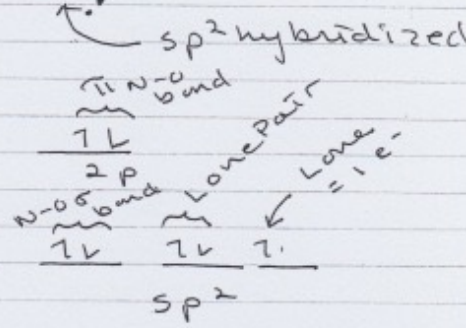 sp² hybridized
π N-O bond
1L
2p
N-O σ bond
Lone Pair
Lone = 1 e-
1L 1L 1.
sp²